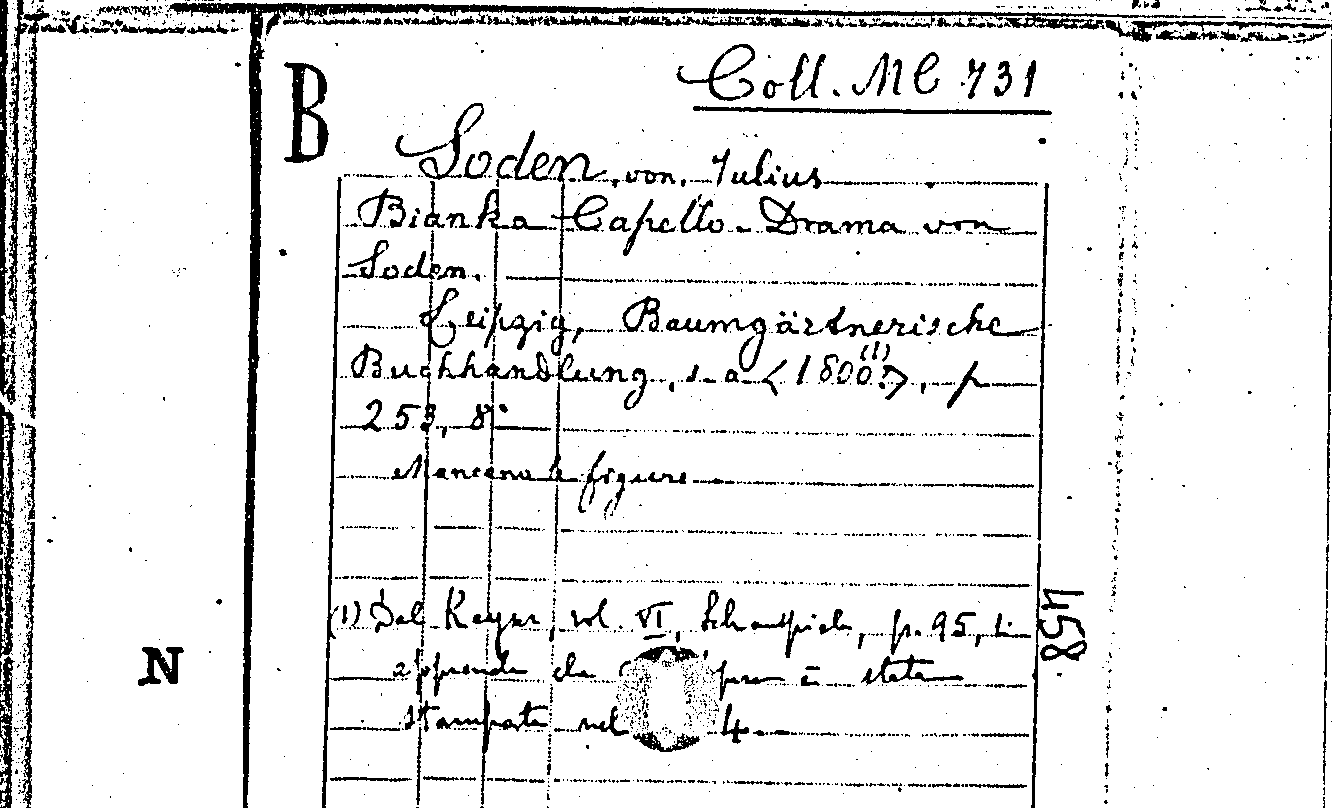 Coll. MC 731
B
Soden, von, Julius
Bianka Capello - Drama von
Soden.
Leipzig, Baumgärtnerische
Buchhandlung, s. a. <1800?>(1), p
253, 8°
Mancano le figure
(1) Dal Kayser, vol. VI, Schauspiele, p. 95, si
apprende che pera è stata
stampata nel 4.
458
N